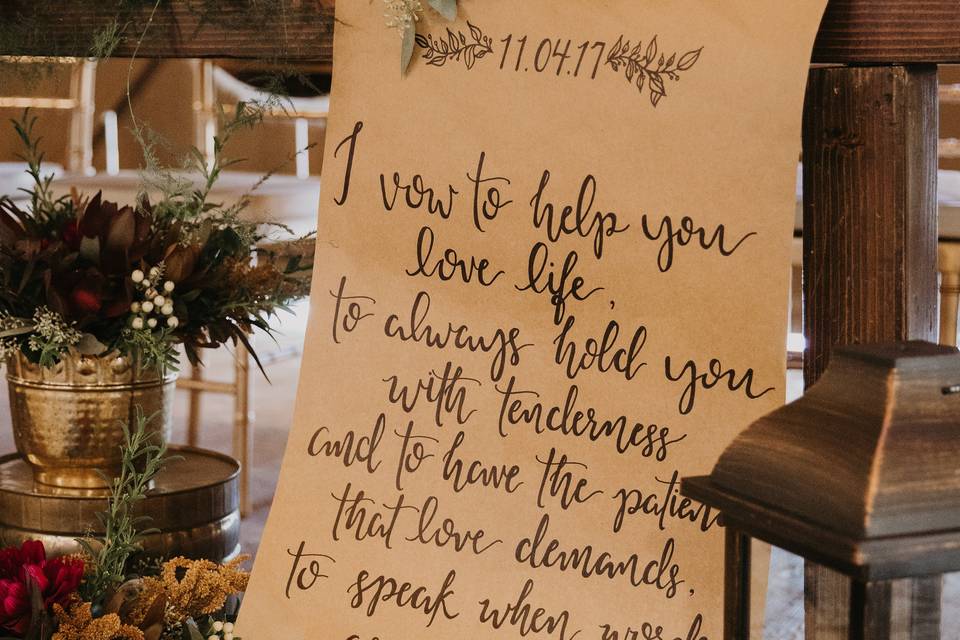 11.04.17
I vow to help you
love life,
to always hold you
with tenderness
and to have the
that love demands,
to speak when